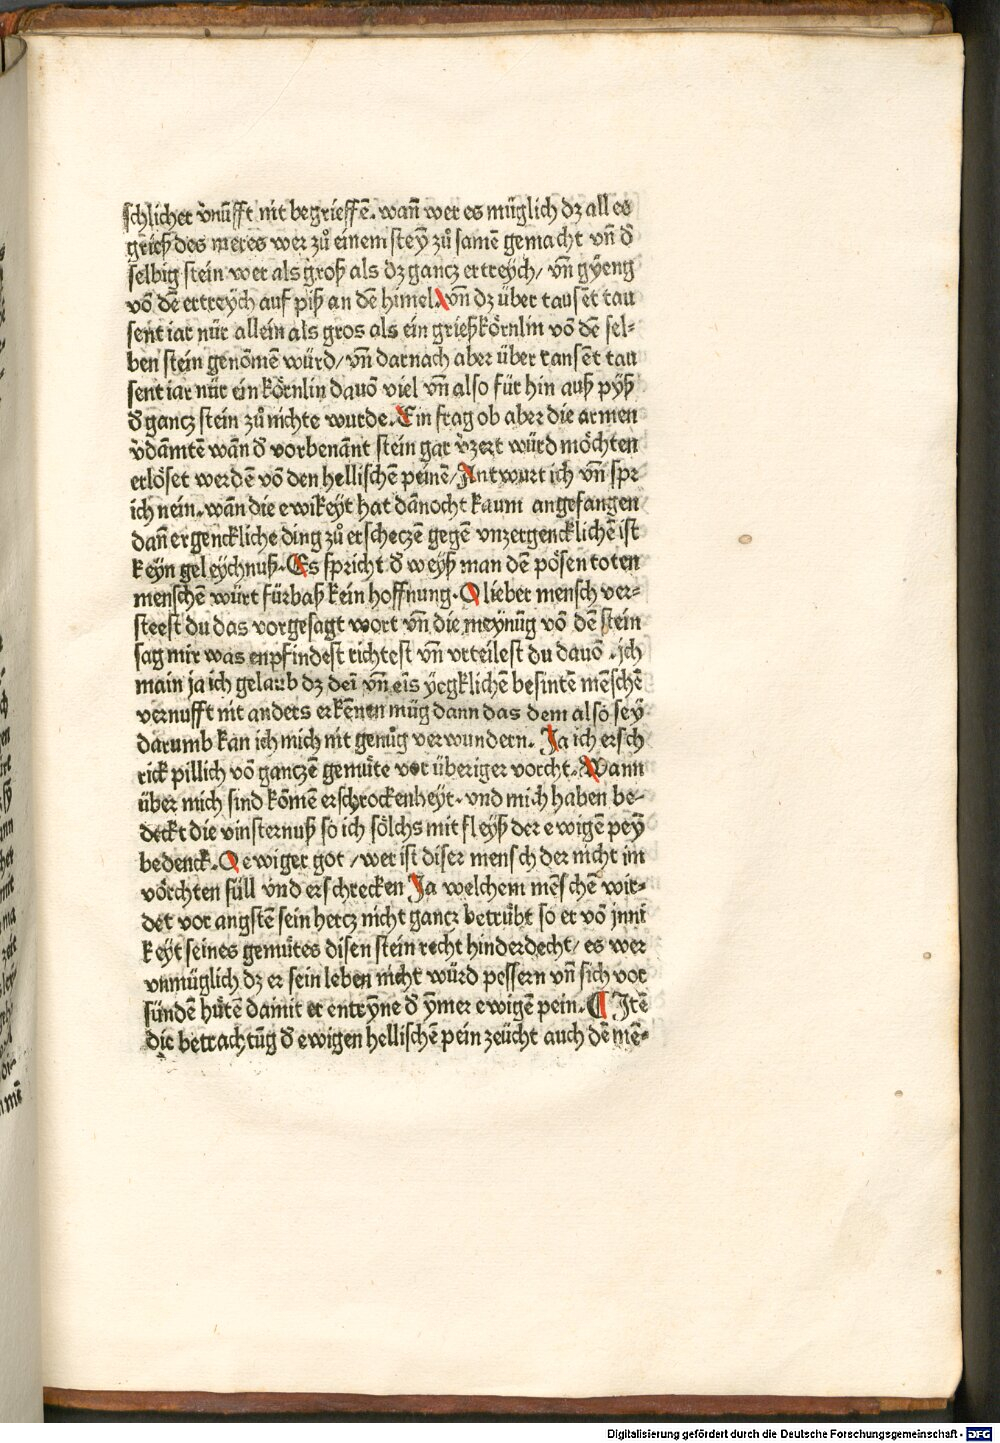 schlicher v̉nūfft nit begrieffē. wañ wer es müglich dz all es
grieß des meres wer zů einem steȳ zů samē gemacht vñ đ
selbig stein wer als groß als dz gancz ertreÿch/ vñ gÿeng
vō dē ertreÿch auf piß an dē himel. vñ dz über tausēt tau
sent iar nür allein als gros als ein grießkörnlin vō dē sel⸗
ben stein genōmē würd/ vñ darnach aber über tansēt tau
sent iar nür ein körnlin dauō viel vñ also für hin auß pÿß
đ gancz stein zů nichte wurde. Ein frag ob aber die armen
v̉dāmtē wān đ vorbenānt stein gar v̉zert würd möchten
erlöset werdē vō den hellischē peinē/ Antwurt ich vñ spr
ich nein. wān die ewikeyt hat dānocht kaum angefangen
dañ ergenckliche ding zů erscheczē gegē vnzergencklichē ist
keÿn geleÿchnuß. Es spricht đ weÿß man dē pösen toten
menschē würt fürbaß kein hoffnung. O lieber mensch ver⸗
steest du das vorgesagt wort vñ die meynūg vō dē stein
sag mir was enpfindest richtest vñ vrteilest du dauō . ich
main ja ich gelaub dz dei vñ eis ÿegklichē besintē mēschē
vernufft nit anders erkēnen müg dann das dem also seÿ
darumb kan ich mich nit genůg verwundern. Ja ich ersch
rick pillich vō ganczē gemüte vor überiger vorcht. Wann
über mich sind kōmē erschrockenheyt. vnd mich haben be⸗
deckt die vinsternuß so ich sölchs mit fleÿß der ewigē peȳ
bedenck. O ewiger got / wer ist diser mensch der nicht im
vörchten süll vnd erschrecken Ja welchem mēschē wir⸗
det vor angstē sein hercz nicht gancz betrübt so er vō jnni
keÿt seines gemütes disen stein recht hinderdecht/ es wer
vnmüglich dz er sein leben nicht würd pessern vñ sich vor
sündē hütē damit er entrȳne đ ÿmer ewigē pein. ¶ Jtē
die betrachtūg đ ewigen hellischē pein zeücht auch dē mē⸗
Digitalisierung gefördert durch die Deutsche Forschungsgemeinschaft - DFG